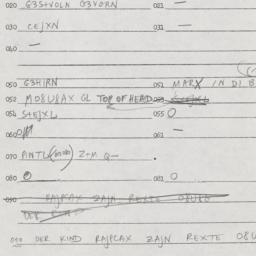 020 G3S+VOLN G3VORN 021 —
030 CEJXN 031 —
040 —
050 G3HIRN 051 MARX IN DI B
052 MO8U8AX GL TOP OF HEAD 053
054 S+EJXL 055 O
060 061 —
070 ANTL Z+M Q—
080 081 O
090 RAJPCAX ZAJN REXTE O8U8G
DER
090 DER KIND RAJPCAX ZAJN REXTE O8U